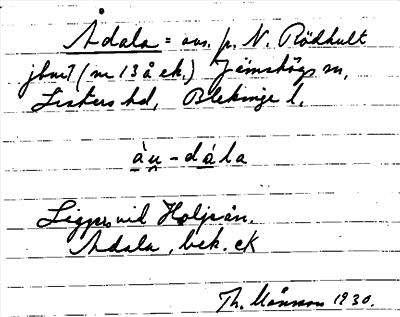 Ådala = avs. p. N. Rödhult
jbruk (nr 13 å ek.) Jämshögs sn,
Listers hd, Blekinge l.
àu̯-dála
Ligger vid Holjeån.
Ådala, bek. ek
Th. Månsson 1930.